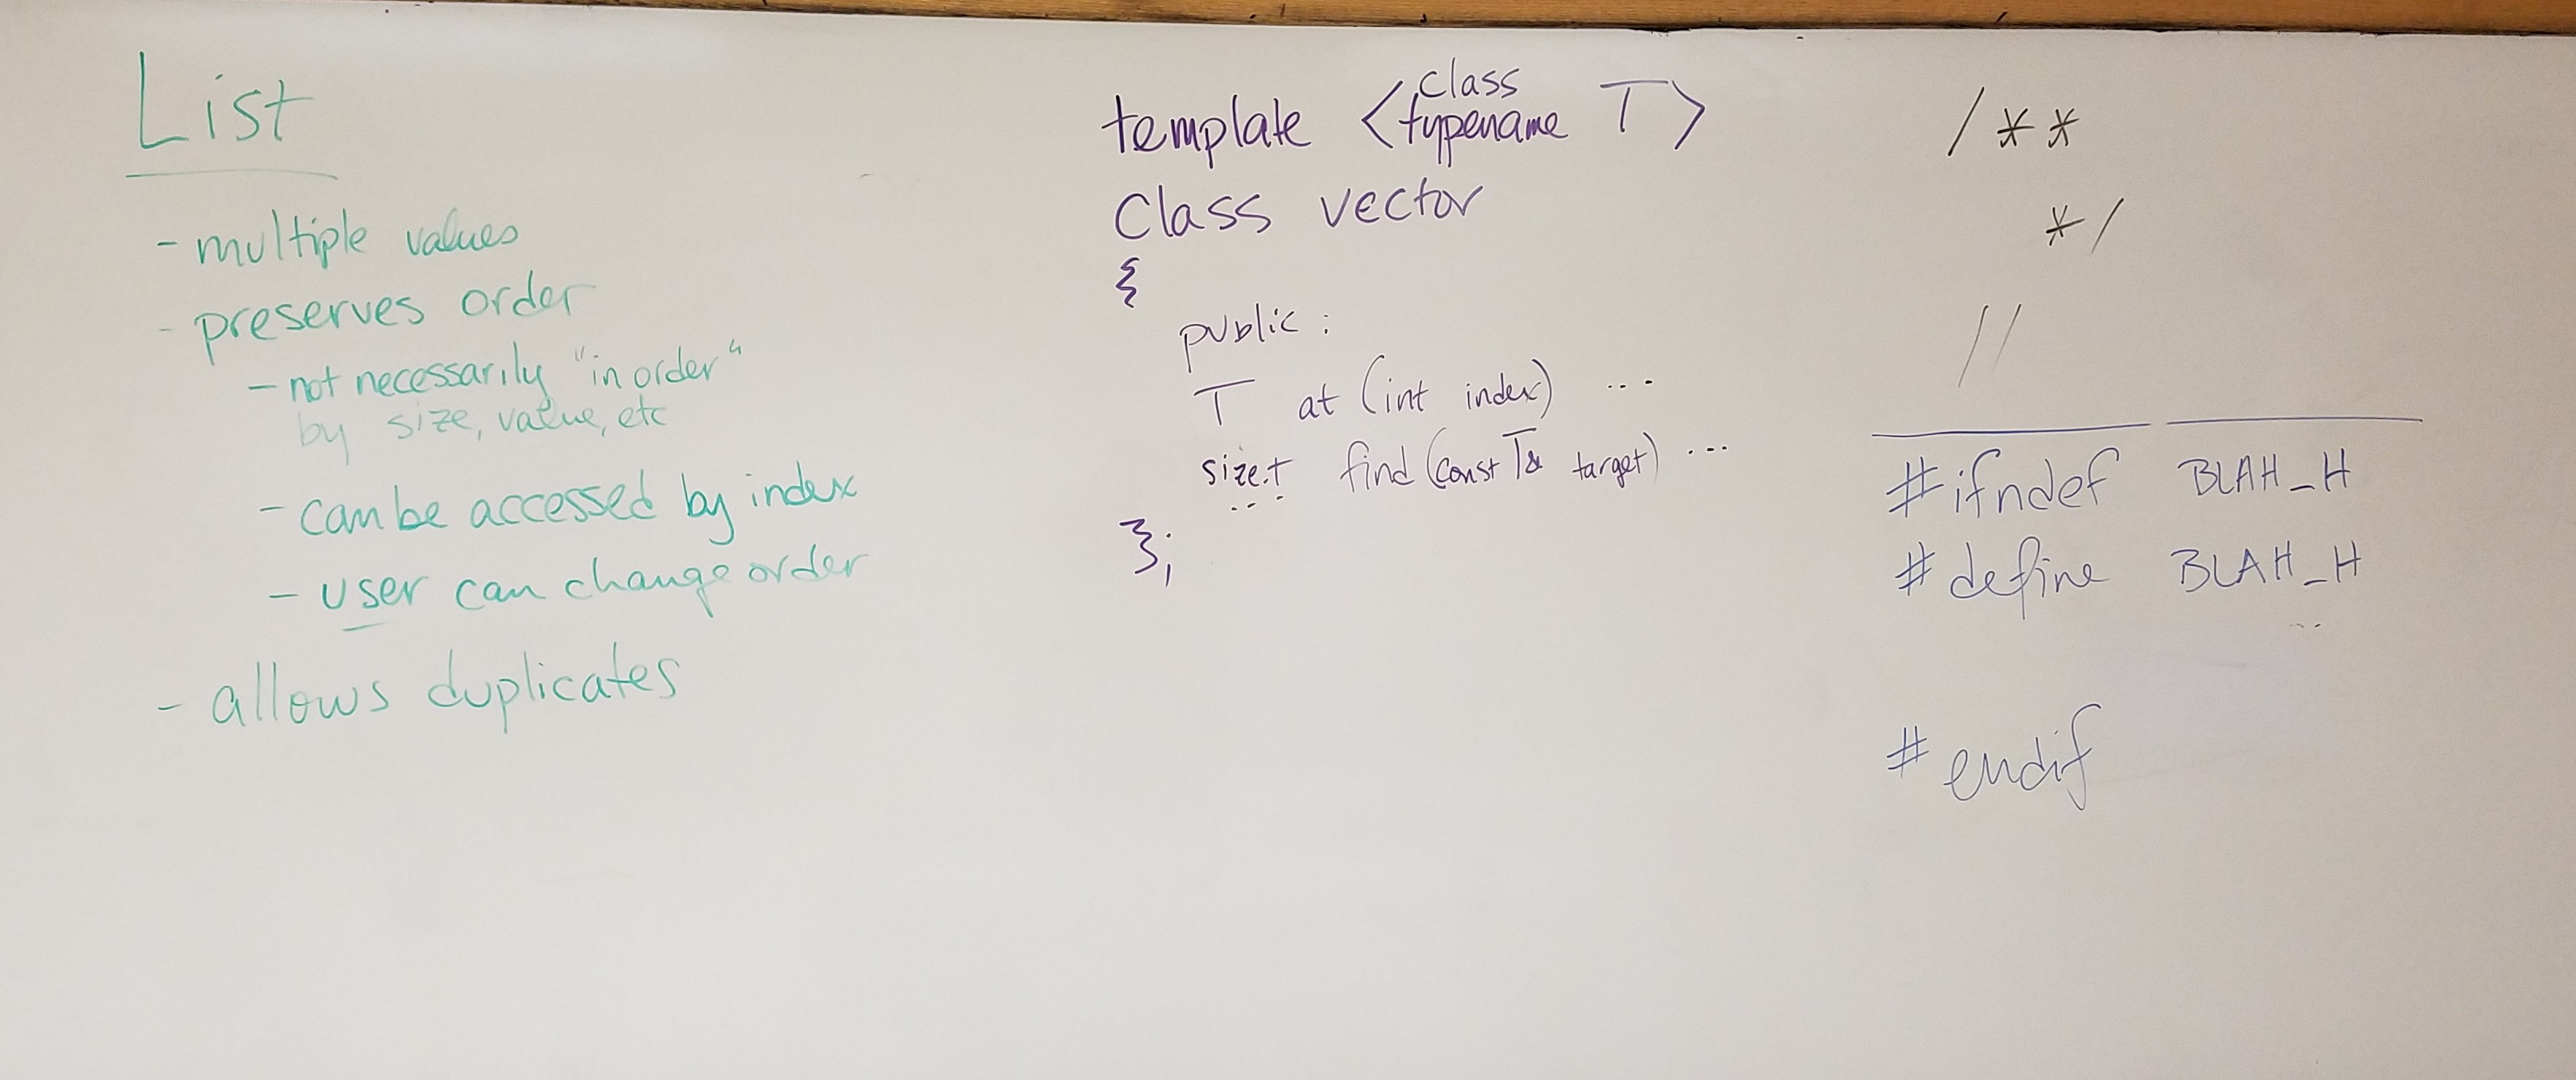 List
- multiple values
- preserves order
- not necessarily "in order"
by size, value, etc
- can be accessed by index
- user can change order
- allows duplicates
class
template <typename T>
Class vector
{
public:
T at (int index) ...
size_t find (const T& target) ...
...
};
/**
*/
//
#ifndef BLAH_H
#define BLAH_H
...
#endif